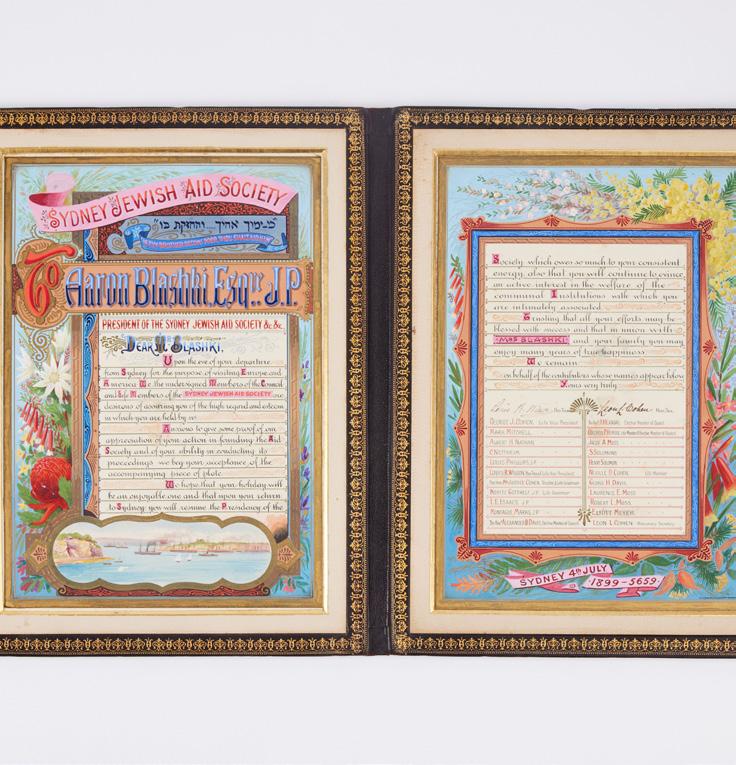 SYDNEY JEWISH AID SOCIETY
"כי ימוך אחיך... והחזקת בו"
"IF THY BROTHER BECOME POOR THOU SHALT AID HIM"
To Aaron Blashki, Esqre. J.P.
PRESIDENT OF THE SYDNEY JEWISH AID SOCIETY &c. &c.
DEAR MR BLASHKI.
Upon the eve of your departure
from Sydney for the purpose of visiting Europe and
America We the undersigned Members of the Council
and Life Members of the SYDNEY JEWISH AID SOCIETY are
desirous of assuring you of the high regard and esteem
in which you are held by us
Anxious to give some proof of our
appreciation of your action in founding the Aid
Society and of your ability in conducting its
proceedings we beg your acceptance of the
accompanying piece of plate.
We hope that your holiday will
be an enjoyable one and that upon your return
to Sydney you will resume the Presidency of the
Society which owes so much to your consistent
energy, also that you will continue to evince
an active interest in the welfare of the
communal Institutions with which you
are intimately associated
Trusting that all your efforts may be
blessed with success and that in union with
MRS BLASHKI and your family you may
enjoy many years of true happiness
We remain
on behalf of the contributors whose names appear below
Yours very truly
Hon. Treas. Leon L. Cohen Hon. Sec.
GEORGE J. COHEN. Life Vice President
MARK MITCHELL
ALBERT H. NATHAN
C NEITHEIM
LOUIS PHILLIPS J.P.
LOUIS R. WILSON
MORITZ GOTTHELF J.P. Life Governor
I. E. ISAACS J.P.
MONTAGUE MARKS J.P.
THE REV. ALEXANDER B. DAVIS
JACOB A. MOSS
S. SOLOMONS
HENRY SOLOMON
NEVILLE D. COHEN Life Member
GEORGE H. DAVIS.
LAURENCE E. MOSS
ROBERT L. MOSS
ELLIOTT MEYER.
LEON L. COHEN Honorary Secretary
SYDNEY 4th JULY
1899-5659.